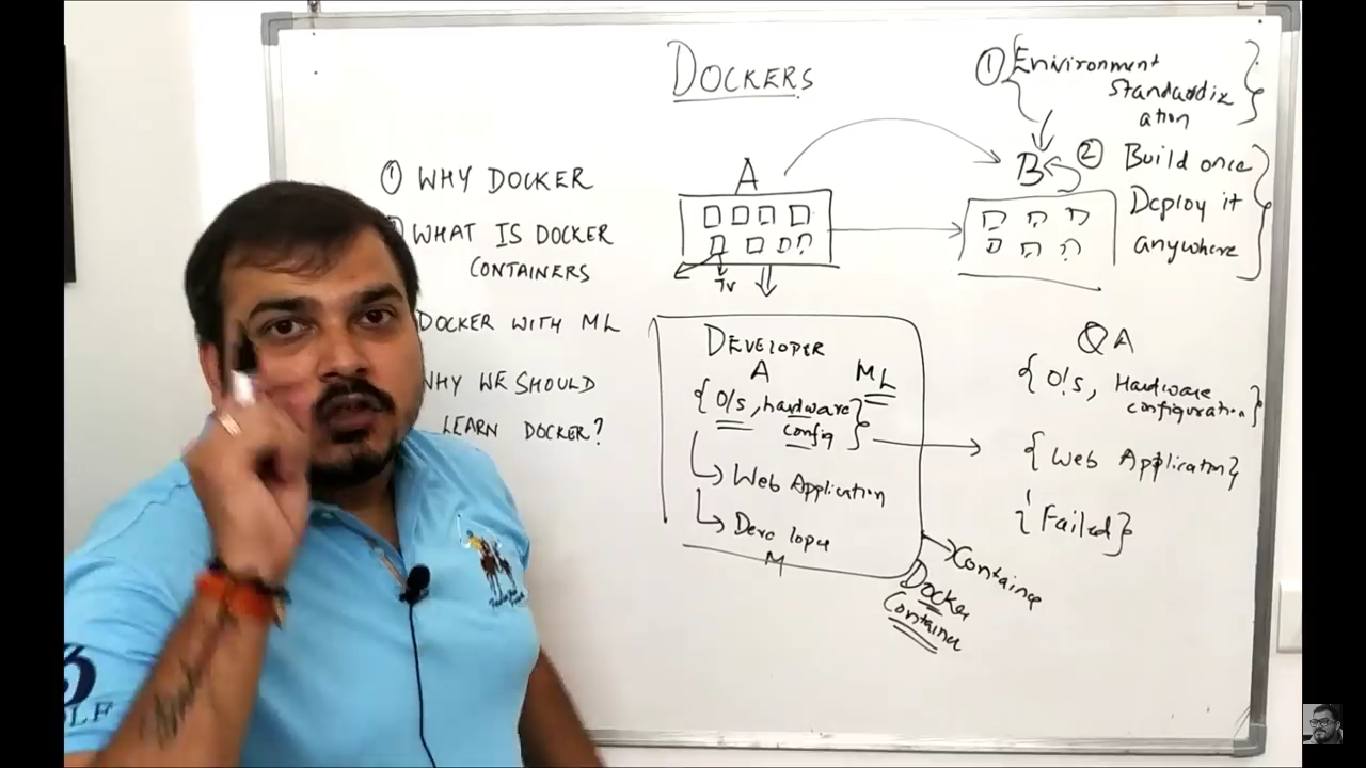 DOCKERS
① WHY DOCKER
WHAT IS DOCKER
CONTAINERS
DOCKER WITH ML
WHY WE SHOULD
LEARN DOCKER?
A
Tv
B
① Environment
Standardiz
ation
② Build once
Deploy it
anywhere
DEVELOPER
A
ML
{O/S, hardware
config}
Web Application
M
Container
Docker
QA
{O/S, Hardware
configuration}
{Web Application}
{Failed}
OLF